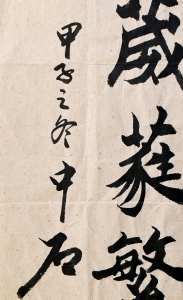 葳蕤繁
甲子之冬中石